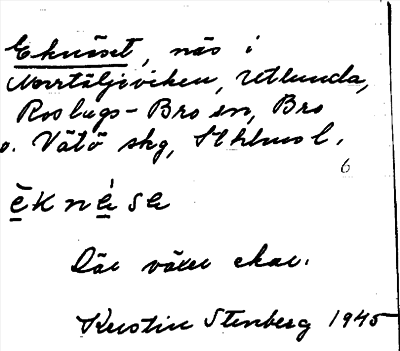 Eknäset, näs i
Norrtäljeviken, Utlunda,
Roslags-Bro sn, Bro
o. Vätö skg, Sthlms l.
6
èk nése
Där växer ekar.
Kerstin Stenberg 1945